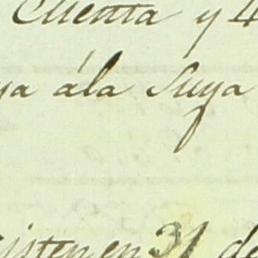 Cuenta y 4
ya ála suya
isten en 31 de